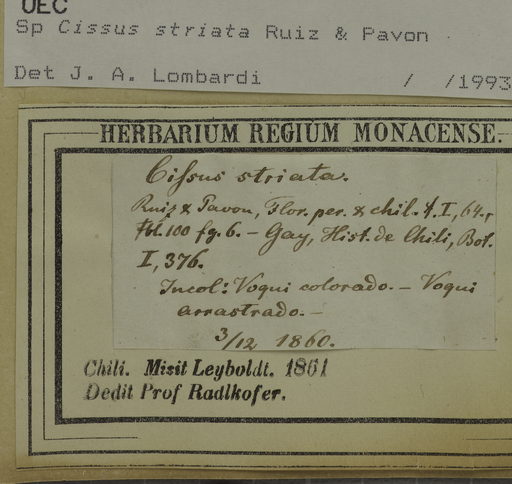 UEC
Sp Cissus striata Ruiz & Pavon
Det J. A. Lombardi / /1993
HERBARIUM REGIUM MONACENSE.
Cißus striata.
Ruiz & Pavon, Flor. per. & chil. t. I, 64.,
Tbl. 100 fg. 6. – Gay, Hist. de Chili, Bot.
I, 376.
Incol: Voqui colorado. – Voqui
arrastrado. –
3/12 1860.
Chili. Misit Leyboldt. 1861
Dedit Prof Radlkofer.